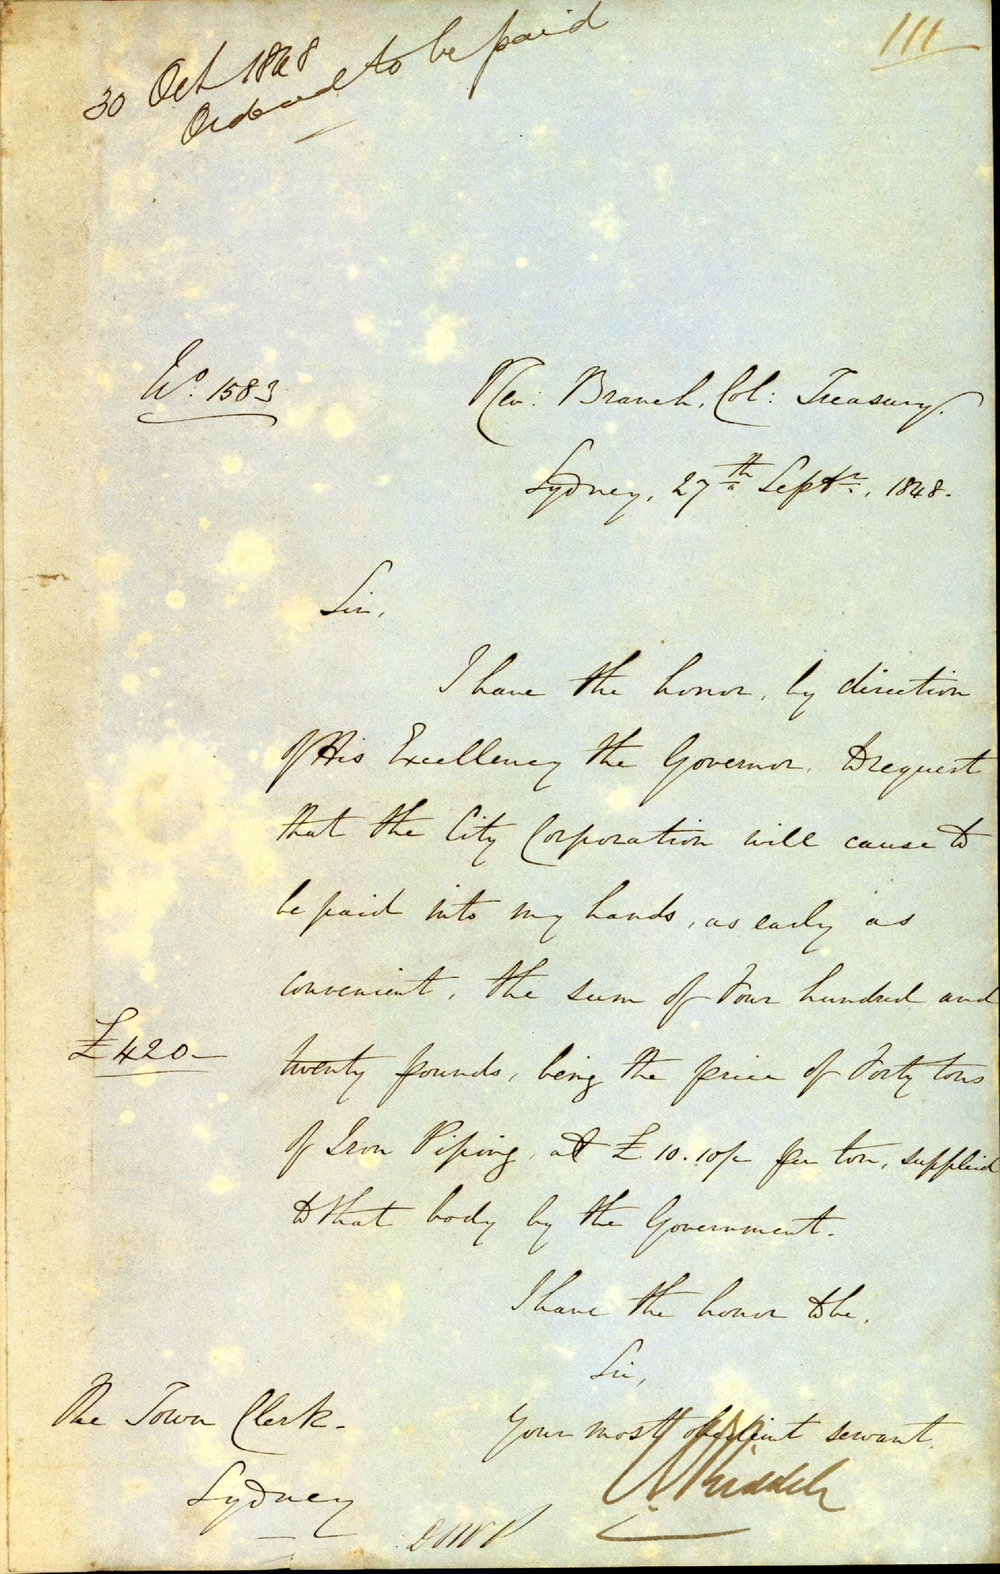 111
30 Oct 1848
Ordered to be paid
No. 1583
Rev: Branch, Col: Treasury.
Sydney, 27th Septr., 1848.
Sir,
I have the honor, by direction
of His Excellency the Governor, to request
that the City Corporation will cause to
be paid into my hands, as early as
convenient, the sum of Four hundred and
£420-
twenty pounds, being the price of Forty tons
of Iron Piping, at £10.10/- per ton, supplied
to that body by the Government.
I have the honor to be,
Sir,
Your most obedient servant,
Riddell
The Town Clerk-
Sydney